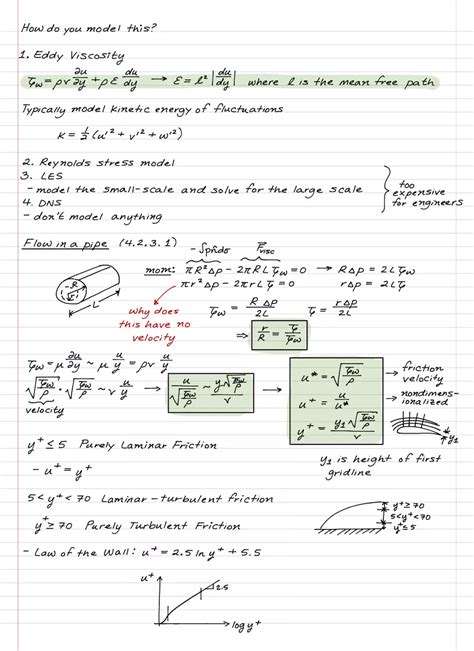 How do you model this?
1. Eddy Viscosity
τw = ρν ∂u/∂y + ρε du/dy → ε = l² |du/dy| where l is the mean free path
Typically model kinetic energy of fluctuations
K = 1/2 (u'² + v'² + w'²)
2. Reynolds stress model
3. LES
- model the small-scale and solve for the large scale
4. DNS
- don't model anything
} too expensive for engineers
Flow in a pipe (4.2.3.1)
- ∫pn̂dσ Fvisc
mom: πR²Δp - 2πRLτw = 0 → RΔp = 2Lτw
πr²Δp - 2πrLτ = 0 rΔp = 2Lτ
R
r
L
why does
this have no
velocity
τw = RΔp/2L τ = rΔp/2L
⇒ r/R = τ/τw
τw = μ ∂u/∂y ~ μ u/y = ρν u/y
√(τw/ρ) · √(τw/ρ) ~ ν u/y → u/√(τw/ρ) ~ y√(τw/ρ)/ν →
velocity
u* = √(τw/ρ) → friction velocity
u⁺ = u/u* → nondimensionalized
y⁺ = y₁√(τw/ρ)/ν
y₁ is height of first
gridline
y⁺ ≤ 5 Purely Laminar Friction
- u⁺ = y⁺
5 < y⁺ < 70 Laminar-turbulent friction
y⁺ ≥ 70 Purely Turbulent Friction
y⁺ ≥ 70
5 < y⁺ < 70
y⁺ ≤ 5
- Law of the Wall: u⁺ = 2.5 ln y⁺ + 5.5
u⁺
2.5
log y⁺